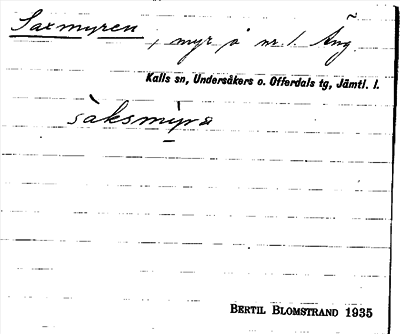 Saxmyren, myr å nr 1 Äng
Kalls sn, Undersåkers o. Offerdals tg, Jämtl. l.
sàksmỳra
BERTIL BLOMSTRAND 1935